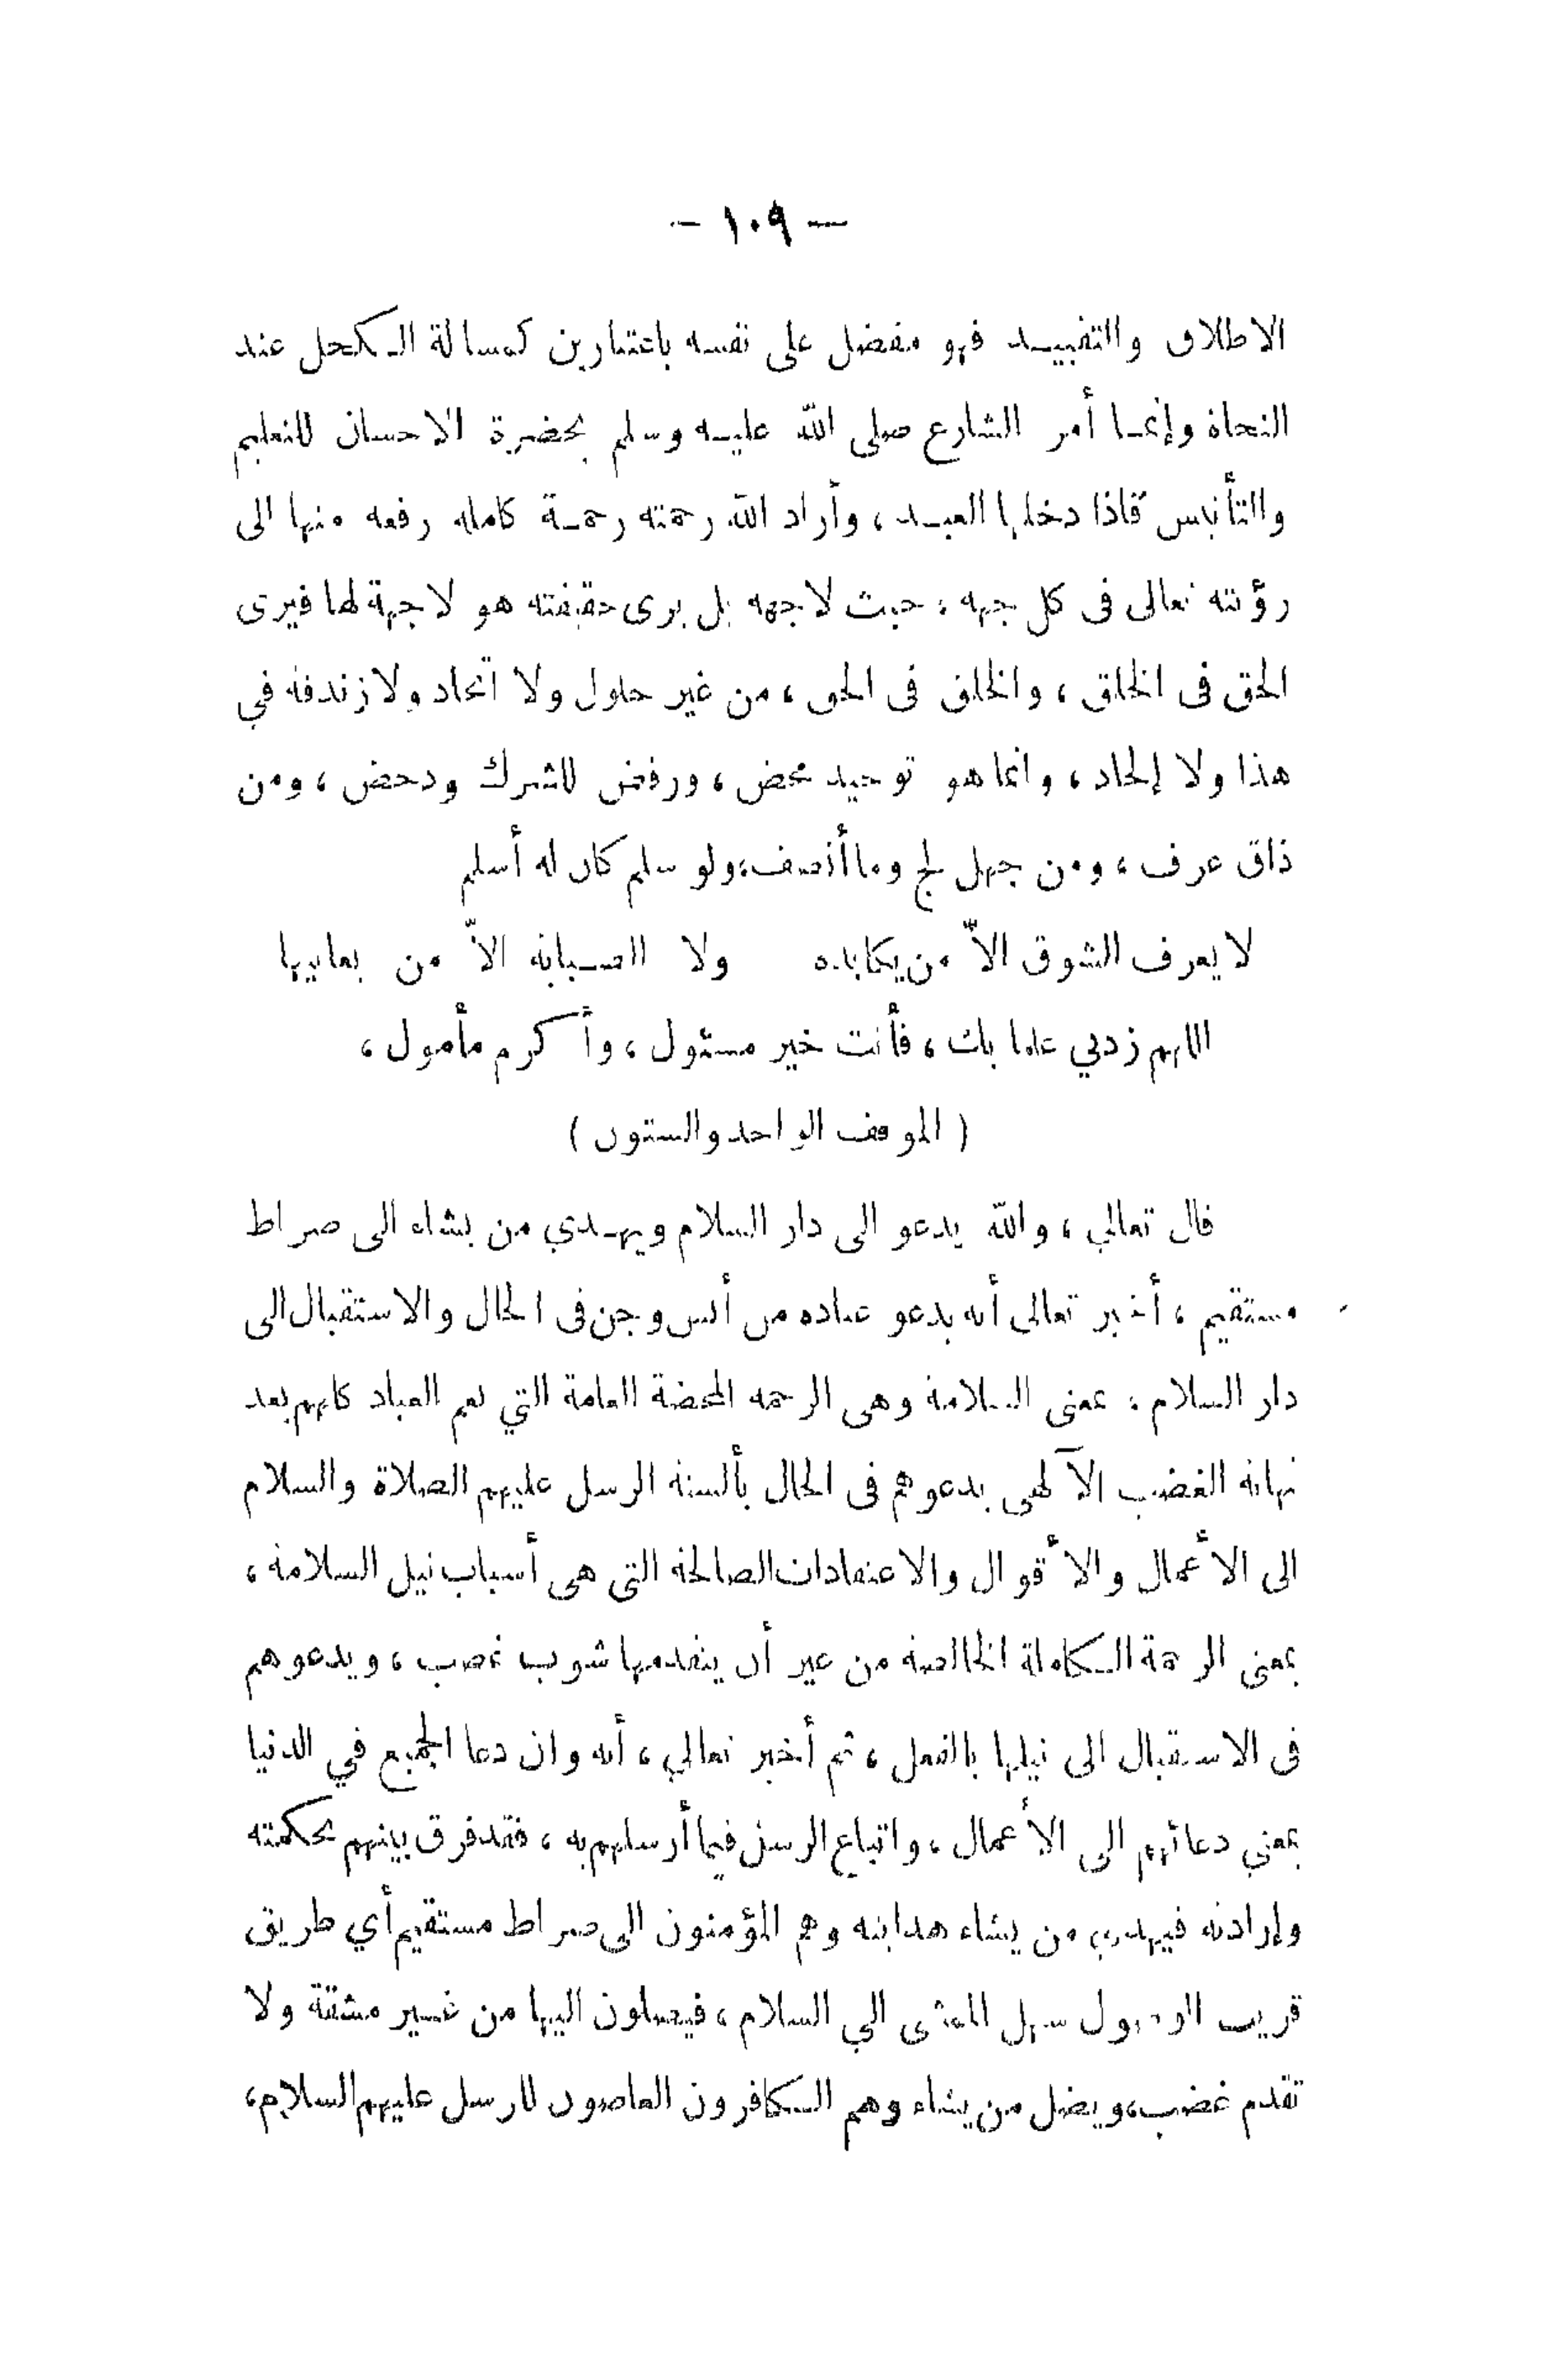 — ١٠٩ —
الاطلاق والتقييد فهو مفضل على نفسه باعتبارين كمسألة الكحل عند
النحاة وإنما أمر الشارع صلى الله عليه وسلم بحضرة الاحسان للتعليم
والتأنيس فاذا دخلها العبد ، وأراد الله رحمته رحمة كاملة رفعه منها الى
رؤيته تعالى فى كل جهة ، حيث لا جهة بل يرى حقيقته هو لا جهة لها فيرى
الحق فى الخلق ، والخلق فى الحق ، من غير حلول ولا اتحاد ولا زندقة في
هذا ولا إلحاد ، وانما هو توحيد محض ، ورفض للشرك ودحض ، ومن
ذاق عرف ، ومن جهل لج وما أنصف، ولو سلم كان له أسلم
لا يعرف الشوق الاّ من يكابده ولا الصبابة الاّ من يعانيها
اللهم زدني علما بك ، فأنت خير مسئول ، وأكرم مأمول ،
( الموقف الواحد والستون )
قال تعالي ، والله يدعو الى دار السلام ويهدي من يشاء الى صراط
مستقيم ، أخبر تعالى أنه يدعو عباده من أنس وجن فى الحال والاستقبال الى
دار السلام ، بمعنى السلامة وهى الرحمة المحضة العامة التي تعم العباد كلهم بعد
نهاية الغضب الآلهى يدعوهم فى الحال بألسنة الرسل عليهم الصلاة والسلام
الى الأعمال والأقوال والاعتقادات الصالحة التى هى أسباب نيل السلامة ،
بمعنى الرحمة الكاملة الخالصة من غير أن يتقدمها شوب غضب ، ويدعوهم
فى الاستقبال الى نيلها بالفعل ، ثم أخبر تعالي ، أنه وان دعا الجميع في الدنيا
بمعني دعائهم الى الأعمال ، واتباع الرسل فيما أرسلهم به ، فقد فرق بينهم بحكمته
وإرادته فيهدي من يشاء هدايته وهم المؤمنون الى صراط مستقيم أي طريق
قريب الوصول سهل المشى الي السلام ، فيصلون اليها من غير مشقة ولا
تقدم غضب، ويضل من يشاء وهم الكافرون العاصون للرسل عليهم السلام ،